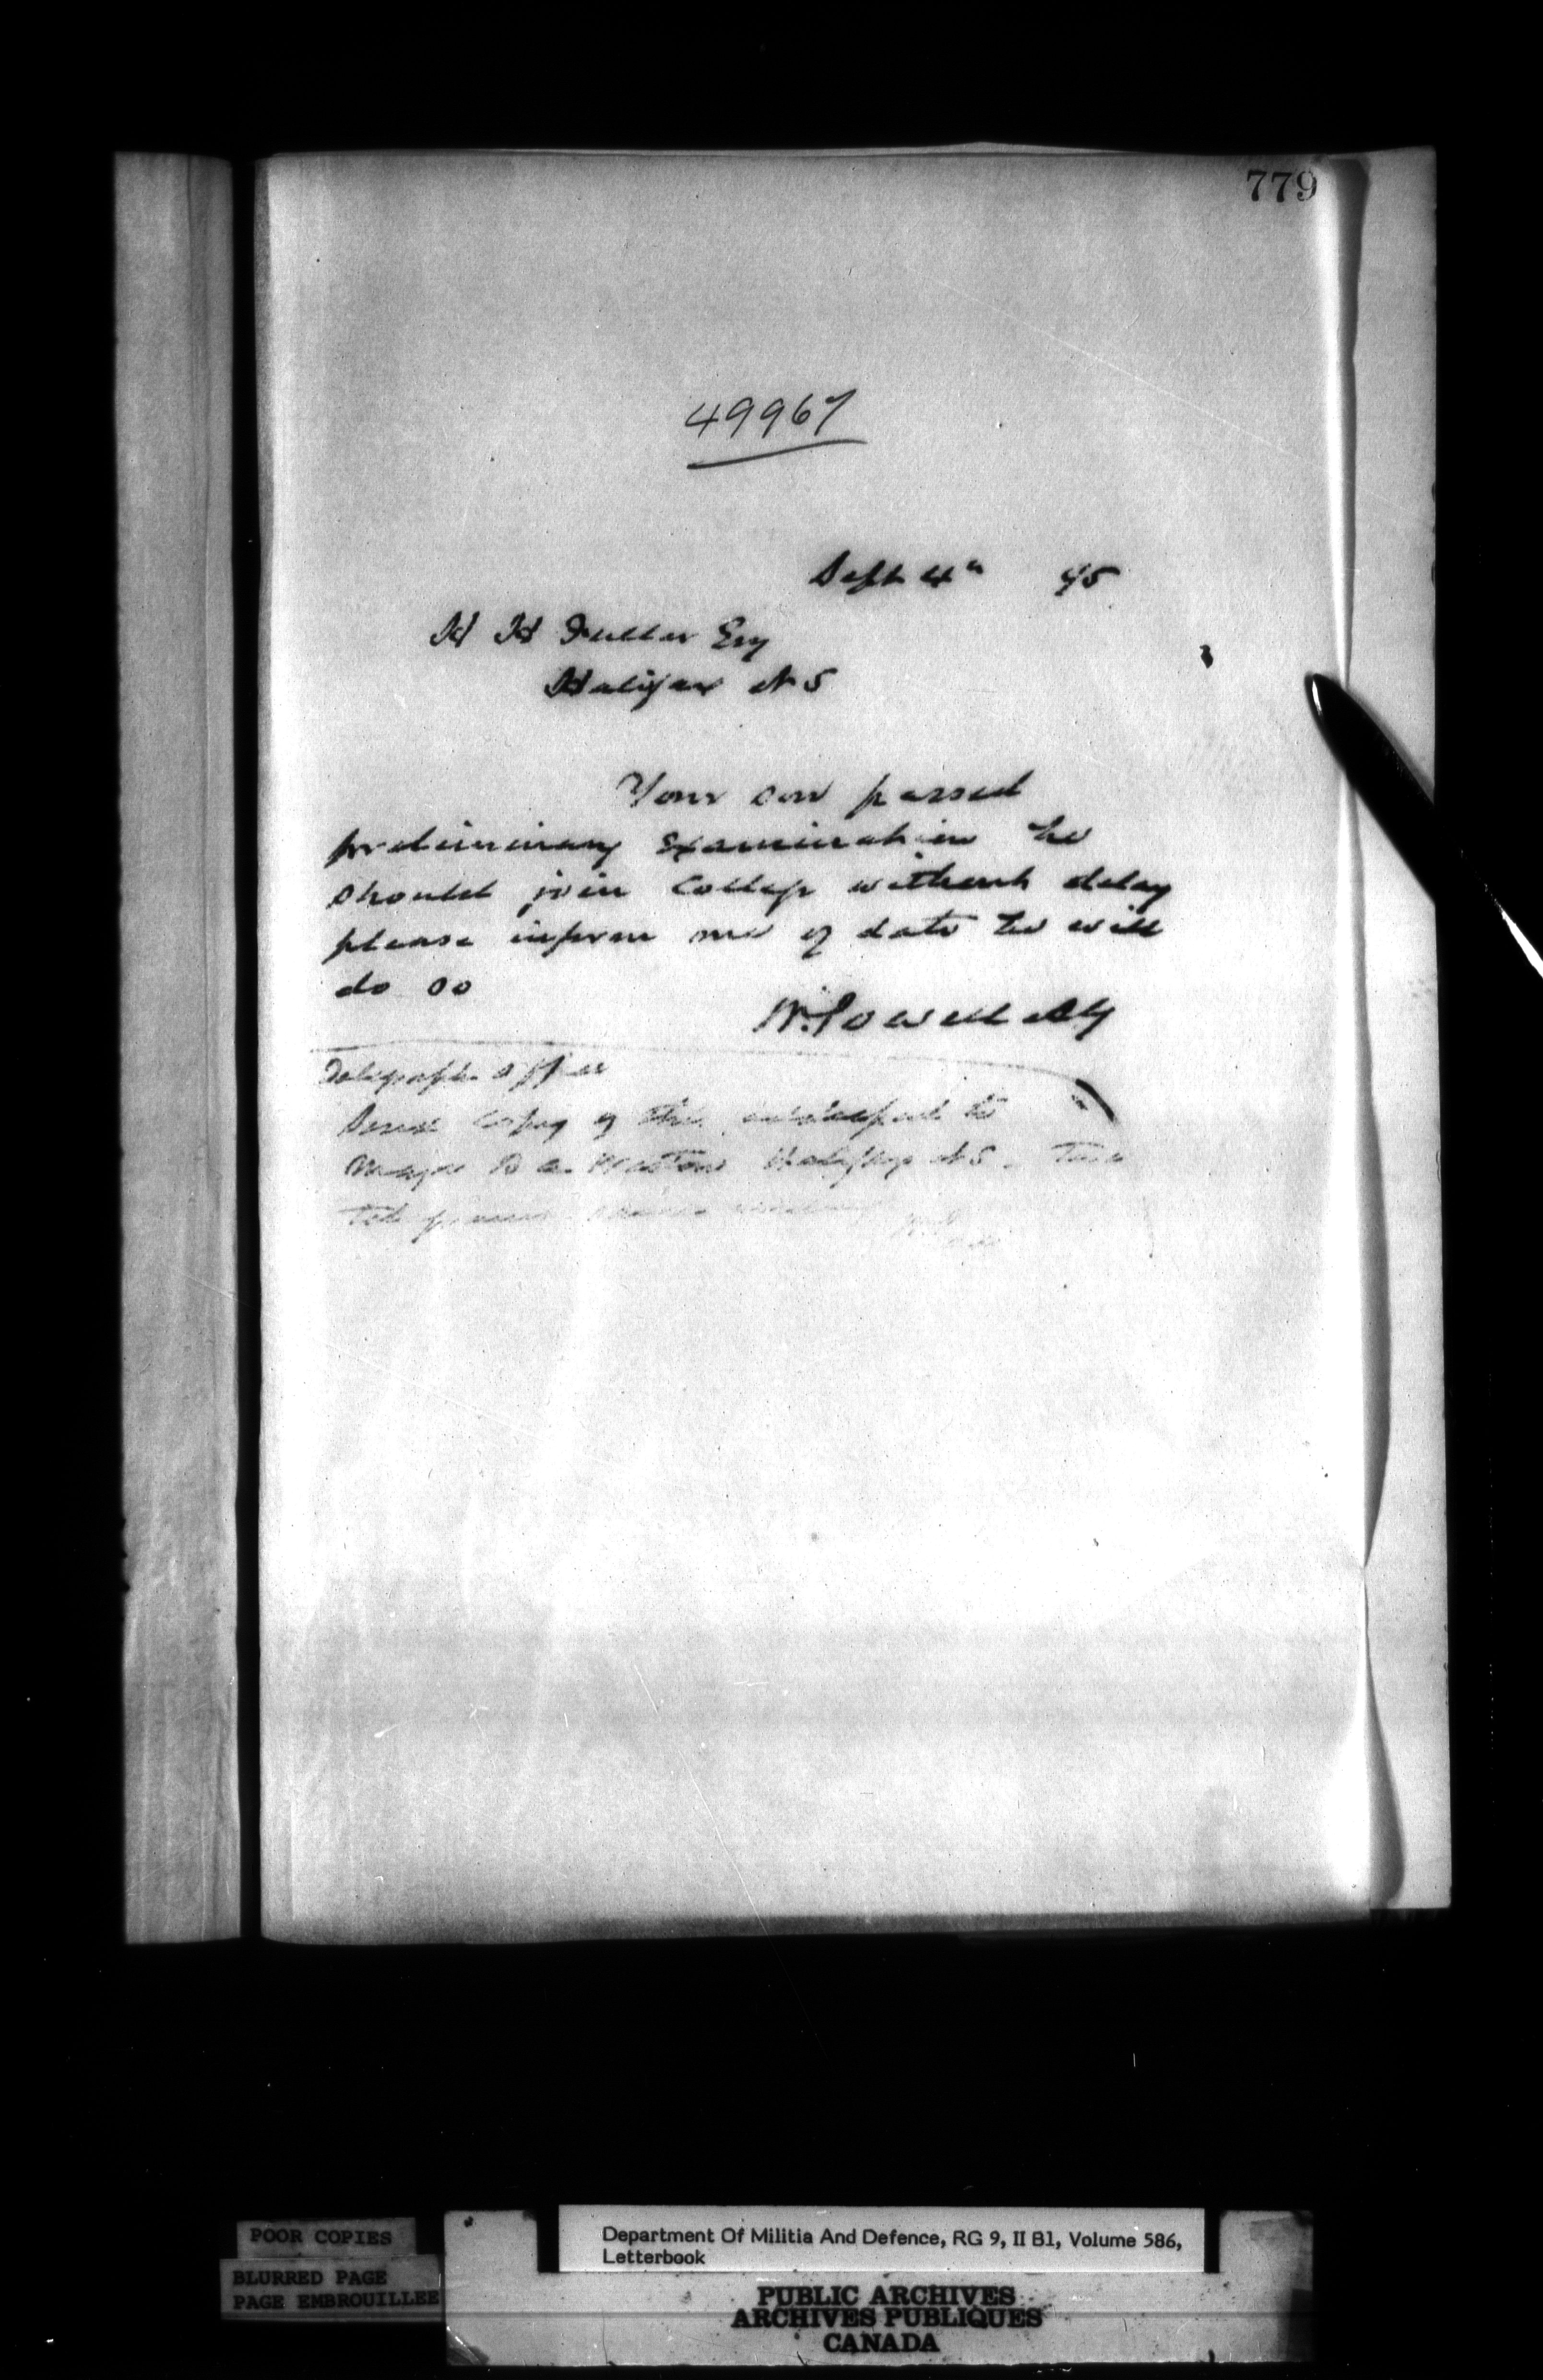 779
49967
Sept 4th 95
H H Fuller Esq
Halifax N S
Your son passed
preliminary examination he
should join College without delay
please inform me of date he will
do so
W. Powell AG
Telegraph Office
Send copy of this to
Major B A Weston Halifax N S.
POOR COPIES
BLURRED PAGE
PAGE EMBROUILLEE
Department Of Militia And Defence, RG 9, II B1, Volume 586,
Letterbook
PUBLIC ARCHIVES
ARCHIVES PUBLIQUES
CANADA